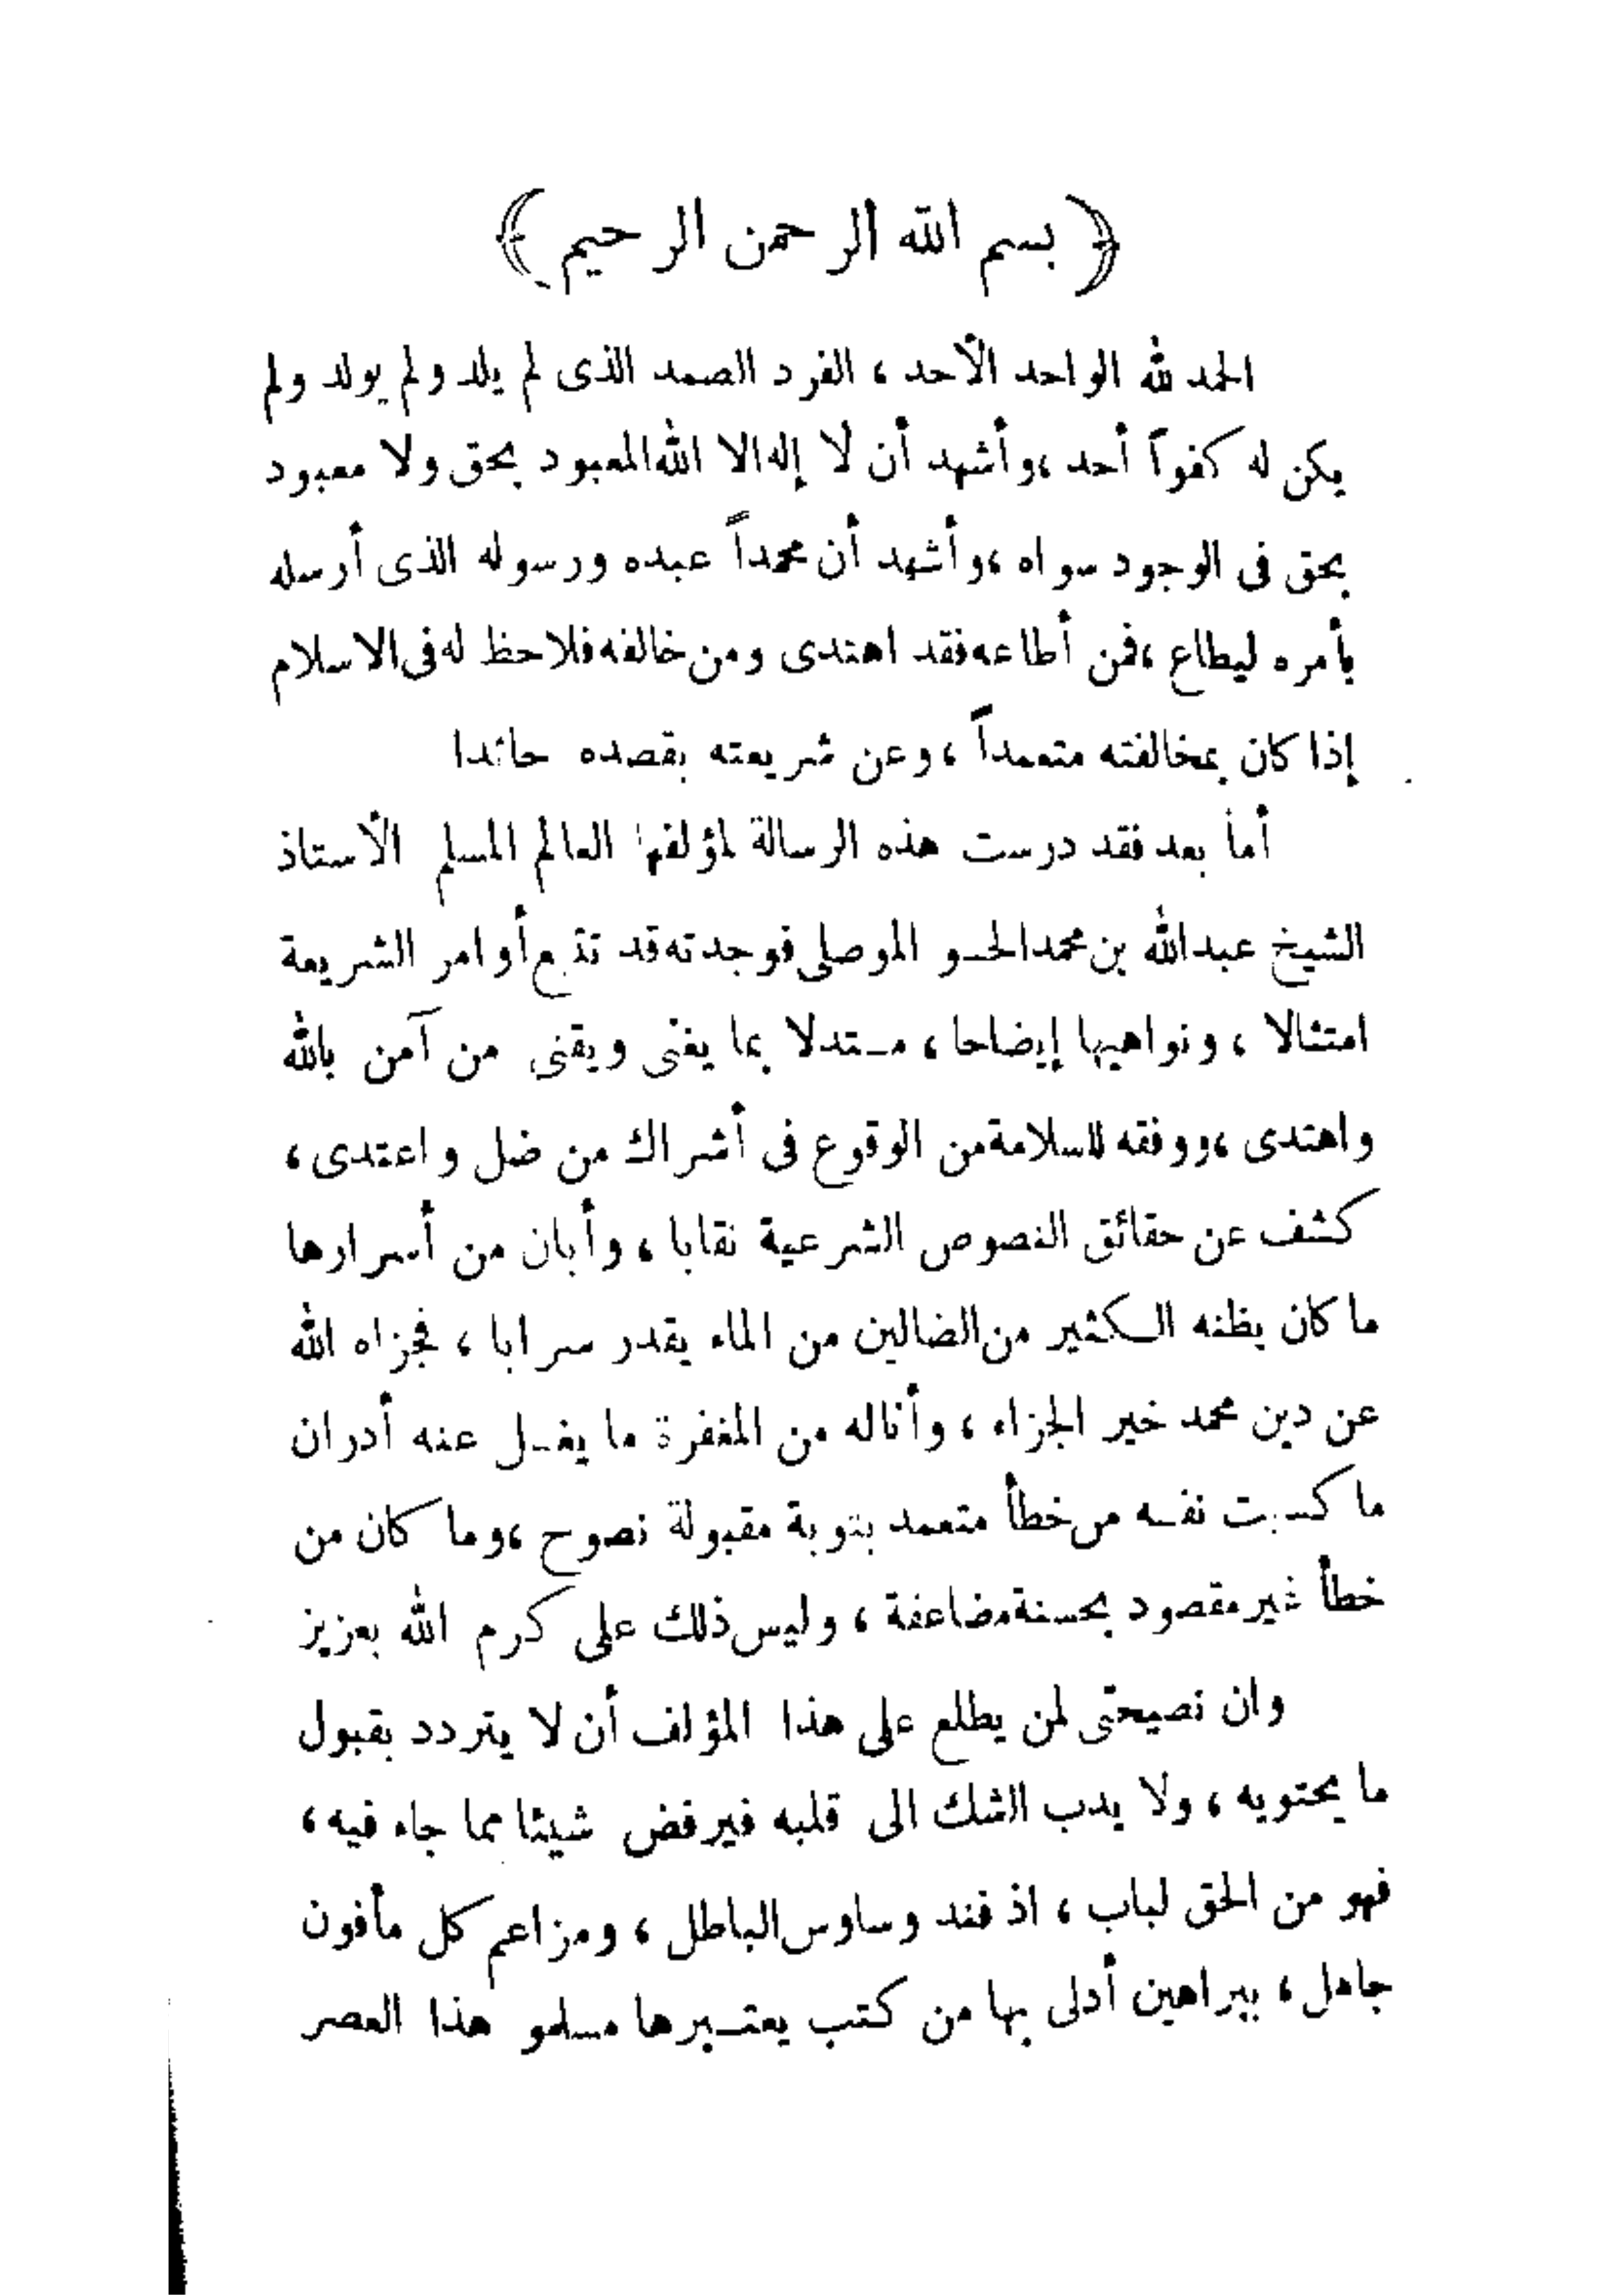 ﴿ بسم الله الرحمن الرحيم ﴾
الحمد لله الواحد الأحد ، الفرد الصمد الذى لم يلد ولم يولد ولم
يكن له كفواً أحد ،وأشهد أن لا إله الا الله المعبود بحق ولا معبود
بحق فى الوجود سواه ،وأشهد أن محمداً عبده ورسوله الذى أرسله
بأمره ليطاع ،فمن أطاعه فقد اهتدى ومن خالفه فلا حظ له فى الاسلام
إذا كان بمخالفته متعمداً ، وعن شريعته بقصده حائدا
أما بعد فقد درست هذه الرسالة لمؤلفها العالم المسلم الأستاذ
الشيخ عبد الله بن محمد الحسو الموصلى فوجدته قد تتبع أوامر الشريعة
امتثالا ، ونواهيها إيضاحا ، مستدلا بما يغنى ويقنى من آمن بالله
واهتدى ،ووفقه للسلامة من الوقوع فى أشراك من ضل واعتدى ،
كشف عن حقائق النصوص الشرعية نقابا ، وأبان من أسرارها
ما كان يظنه الكثير من الضالين من الماء يقدر سرابا ، فجزاه الله
عن دين محمد خير الجزاء ، وأناله من المغفرة ما يغسل عنه أدران
ما كسبت نفسه من خطأ متعمد بتوبة مقبولة نصوح ،وما كان من
خطأ غير مقصود بحسنة مضاعفة ، وليس ذلك على كرم الله بعزيز
وان نصيحتى لمن يطلع على هذا المؤلف أن لا يتردد بقبول
ما يحتويه ، ولا يدب الشك الى قلبه فيرفض شيئا مما جاء فيه ،
فهو من الحق لباب ، اذ فند وساوس الباطل ، ومزاعم كل مأفون
جاهل ، ببراهين أدلى بها من كتب يعتبرها مسلمو هذا العصر